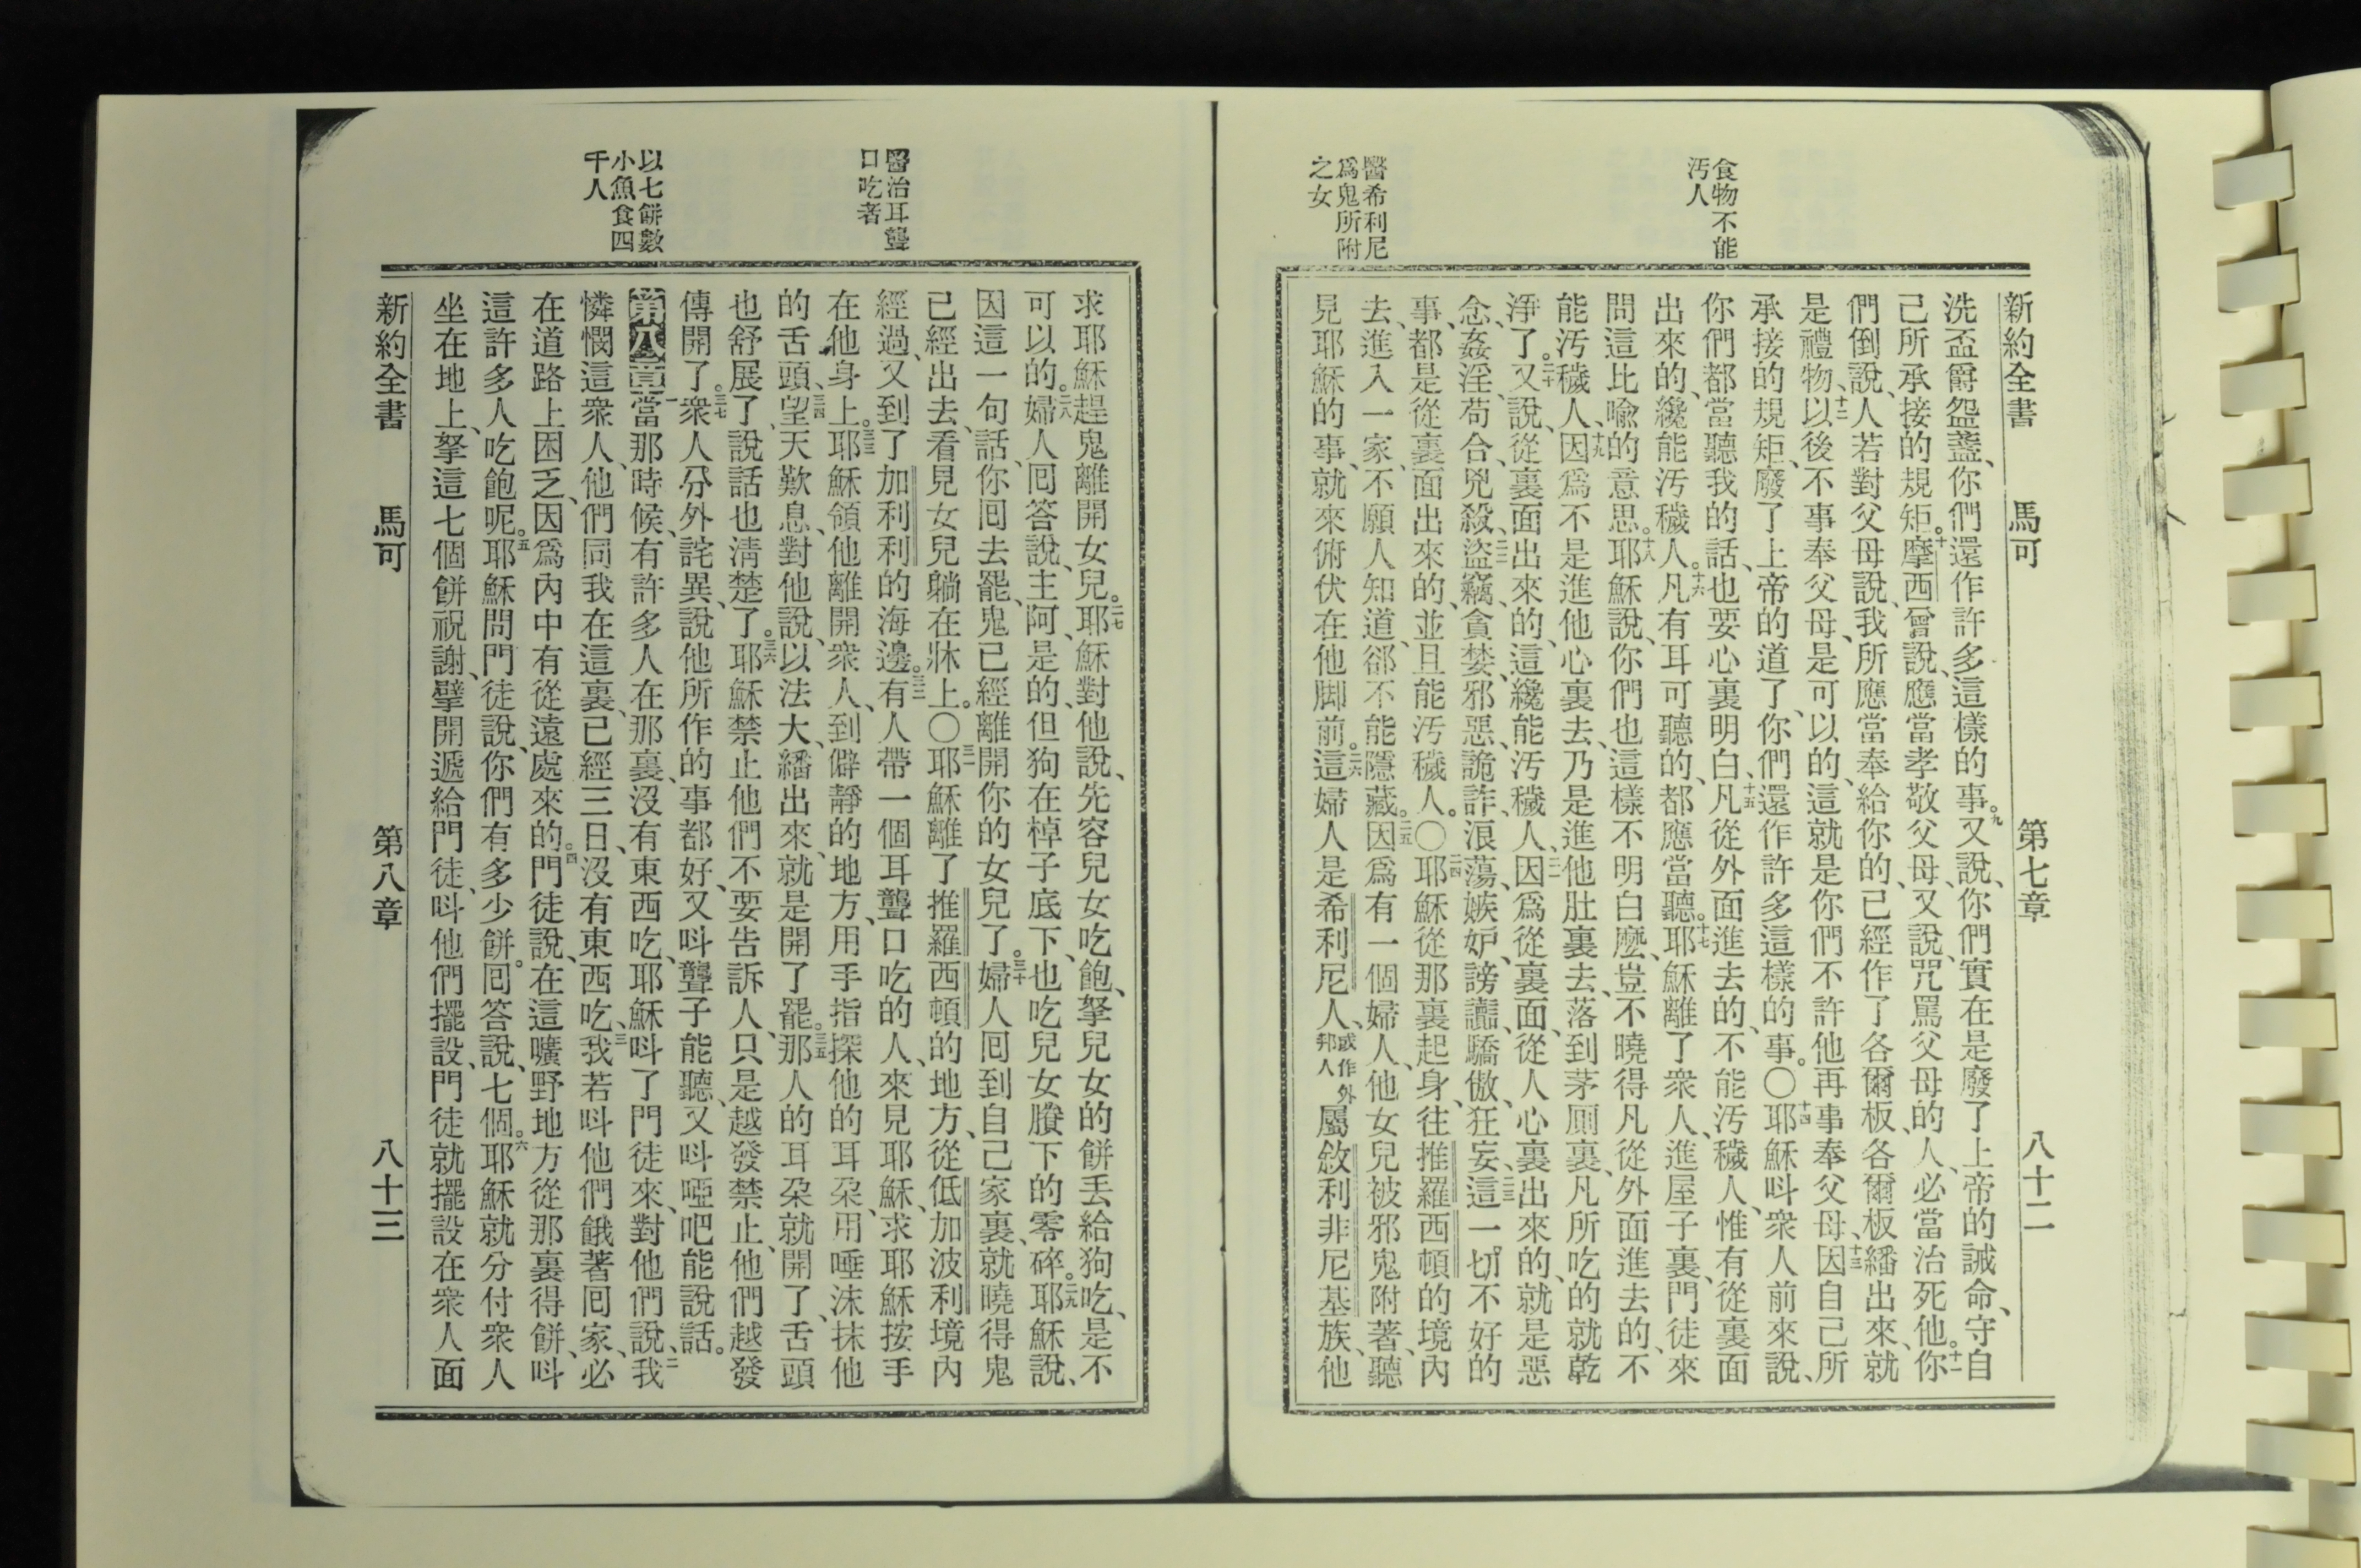 食物不能
汚人
醫希利尼
爲鬼所附
之女
新約全書 馬可 第七章 八十二
洗盃爵盌盞、你們還作許多這樣的事。九又說、你們實在是廢了上帝的誡命、守自
己所承接的規矩。十摩西曾說、應當孝敬父母、又說、咒罵父母的人、必當治死他。十一你
們倒說、人若對父母說、我所應當奉給你的、已經作了各爾板、各爾板繙出來、就
是禮物、十二以後不事奉父母、是可以的、這就是你們不許他再事奉父母、十三因自己所
承接的規矩、廢了上帝的道了、你們還作許多這樣的事。〇十四耶穌呌衆人前來說、
你們都當聽我的話、也要心裏明白、十五凡從外面進去的、不能汚穢人、惟有從裏面
出來的、纔能汚穢人。十六凡有耳可聽的、都應當聽。十七耶穌離了衆人、進屋子裏、門徒來
問這比喻的意思。十八耶穌說、你們也這樣不明白麼、豈不曉得凡從外面進去的、不
能汚穢人、十九因爲不是進他心裏去、乃是進他肚裏去、落到茅厠裏、凡所吃的就乾
淨了。二十又說、從裏面出來的、這纔能汚穢人、二一因爲從裏面、從人心裏出來的、就是惡
念、姦淫、苟合、兇殺、二二盜竊、貪婪、邪惡、詭詐、浪蕩、嫉妒、謗讟、驕傲、狂妄、二三這一切不好的
事、都是從裏面出來的、並且能汚穢人。〇二四耶穌從那裏起身、往推羅西頓的境內
去、進入一家、不願人知道、郤不能隱藏。二五因爲有一個婦人、他女兒被邪鬼附著、聽
見耶穌的事、就來俯伏在他脚前。二六這婦人是希利尼人、或作外邦人屬敘利非尼基族、他
醫治耳聾
口吃者
以七餅數
小魚食四
千人
求耶穌趕鬼離開女兒。二七耶穌對他說、先容兒女吃飽、拏兒女的餅丟給狗吃、是不
可以的。二八婦人囘答說、主阿、是的、但狗在棹子底下、也吃兒女賸下的零碎。二九耶穌說、
因這一句話、你囘去罷、鬼已經離開你的女兒了。三十婦人囘到自己家裏、就曉得鬼
已經出去、看見女兒躺在牀上。〇三一耶穌離了推羅西頓的地方、從低加波利境內
經過、又到了加利利的海邊。三二有人帶一個耳聾口吃的人、來見耶穌、求耶穌按手
在他身上。三三耶穌領他離開衆人、到僻靜的地方、用手指探他的耳朵、用唾沫抹他
的舌頭、三四望天歎息、對他說、以法大、繙出來、就是開了罷。三五那人的耳朶就開了、舌頭
也舒展了、說話也淸楚了。三六耶穌禁止他們不要吿訴人、只是越發禁止、他們越發
傳開了。三七衆人分外詫異、說、他所作的事都好、又呌聾子能聽、又呌啞吧能說話。
第八章一當那時候、有許多人在那裏、沒有東西吃、耶穌呌了門徒來、對他們說、二我
憐憫這衆人、他們同我在這裏、已經三日、沒有東西吃、三我若呌他們餓著囘家、必
在道路上困乏、因爲內中有從遠處來的。四門徒說、在這曠野地方從那裏得餅、呌
這許多人吃飽呢。五耶穌問門徒說、你們有多少餅。囘答說、七個。六耶穌就分付衆人
坐在地上、拏這七個餅祝謝、擘開遞給門徒、呌他們擺設、門徒就擺設在衆人面
新約全書 馬可 第八章 八十三